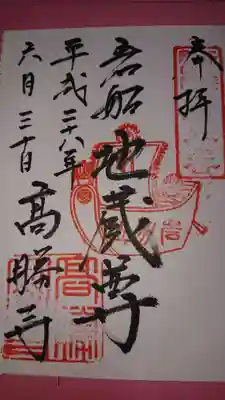 奉拝
岩船地蔵尊
平成二十八年
六月三十日
高勝寺